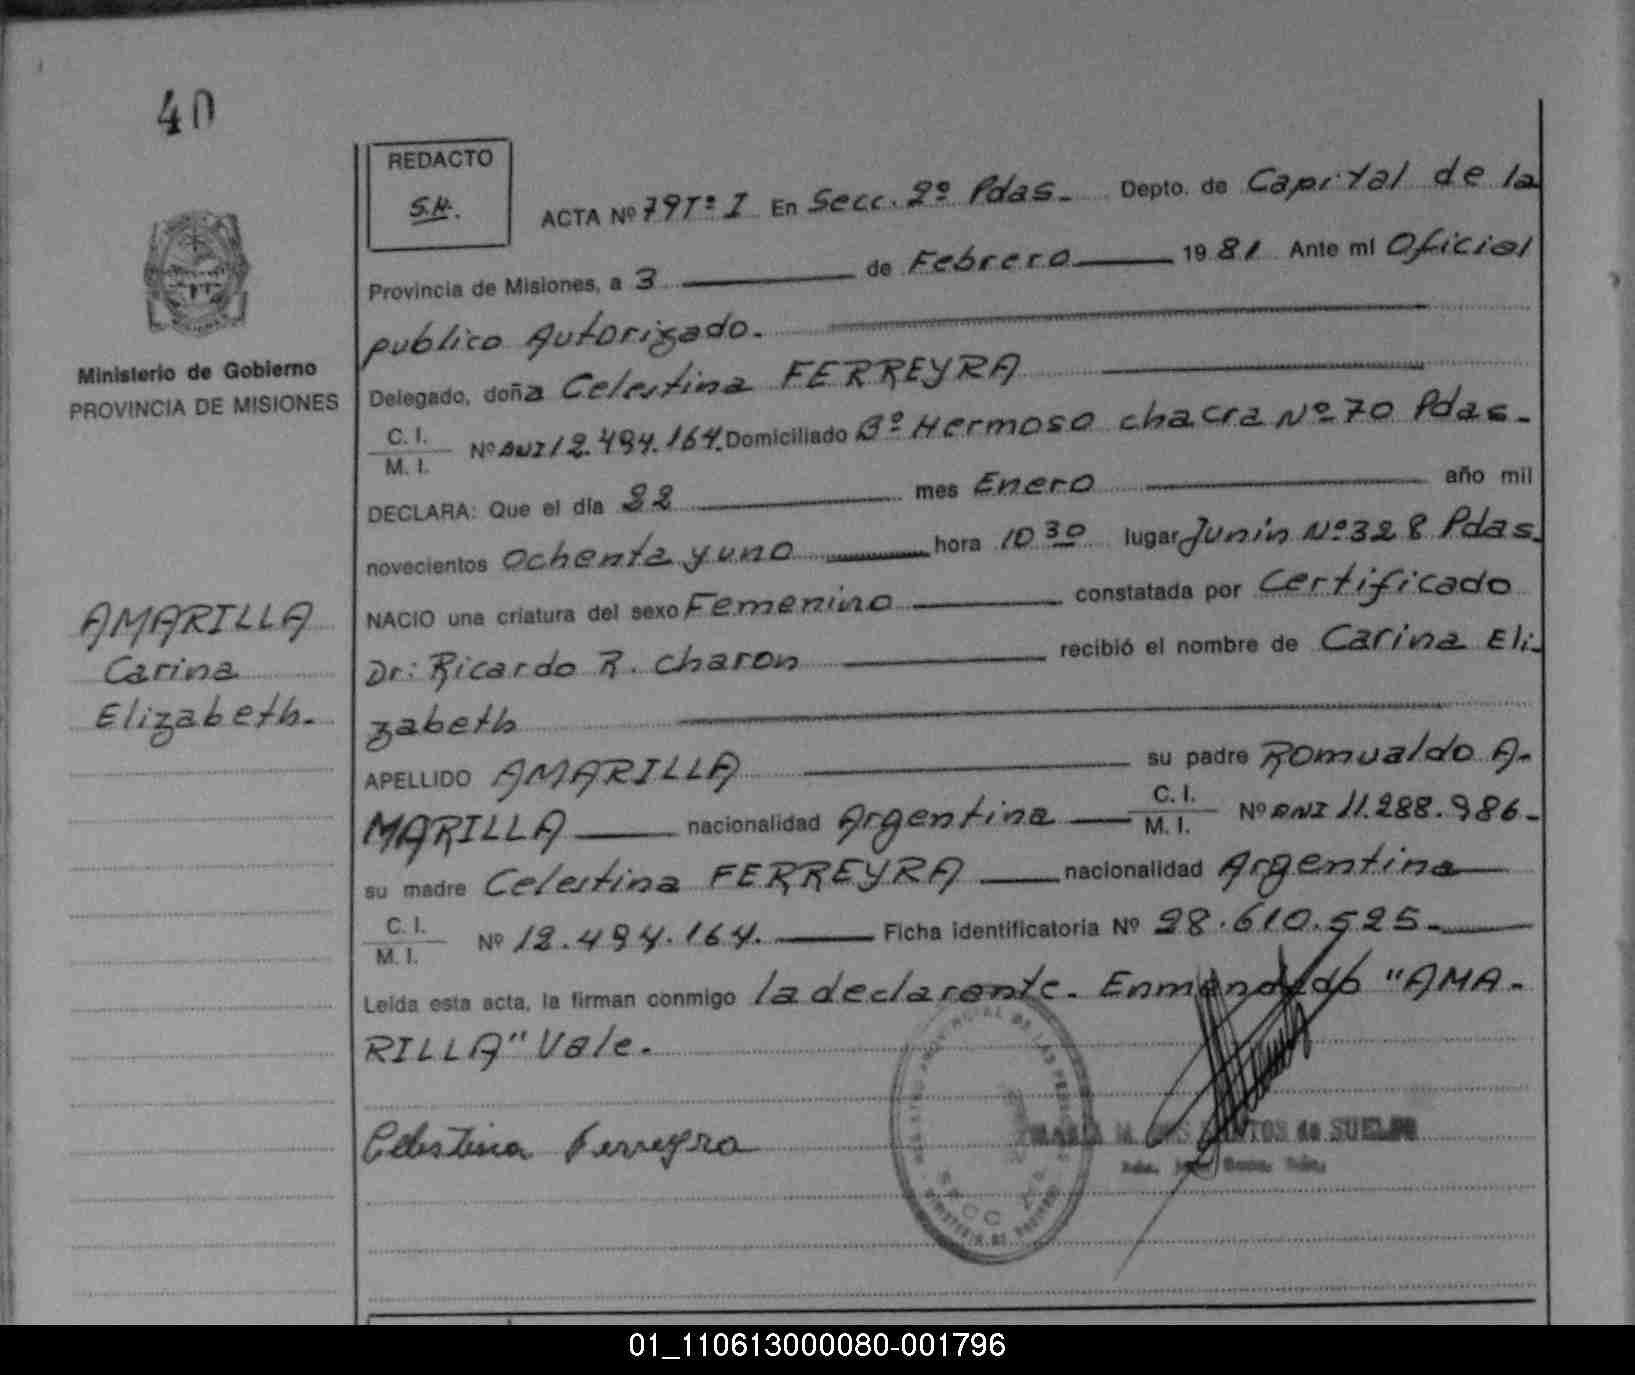 40
REDACTO
S.H.
ACTA Nº 79 Tº I En Secc. 2º Pdas. Depto. de Capital de la
Provincia de Misiones, a 3 de Febrero 1981 Ante mí Oficial
publico Autorizado.
Ministerio de Gobierno
PROVINCIA DE MISIONES
Delegado, doña Celestina FERREYRA
C. I.
M. I. Nº DNI 12.494.164. Domiciliado Bº Hermoso chacra Nº 70 Pdas.
DECLARA: Que el día 22 mes Enero año mil
novecientos Ochenta y uno hora 10 30 lugar Junín Nº 328 Pdas.
NACIO una criatura del sexo Femenino constatada por Certificado
Dr: Ricardo R. Charon recibió el nombre de Carina Eli-
zabeth
AMARILLA
Carina
Elizabeth.
APELLIDO AMARILLA su padre Romualdo A-
MARILLA nacionalidad Argentina C. I.
M. I. Nº DNI 11.288.986.
su madre Celestina FERREYRA nacionalidad Argentina
C. I.
M. I. Nº 12.494.164. Ficha identificatoria Nº 28.610.525.
Leida esta acta, la firman conmigo la declarante. Enmendado "AMA-
RILLA" Vale.
Celestina Ferreyra
de SUELDO
01_110613000080-001796